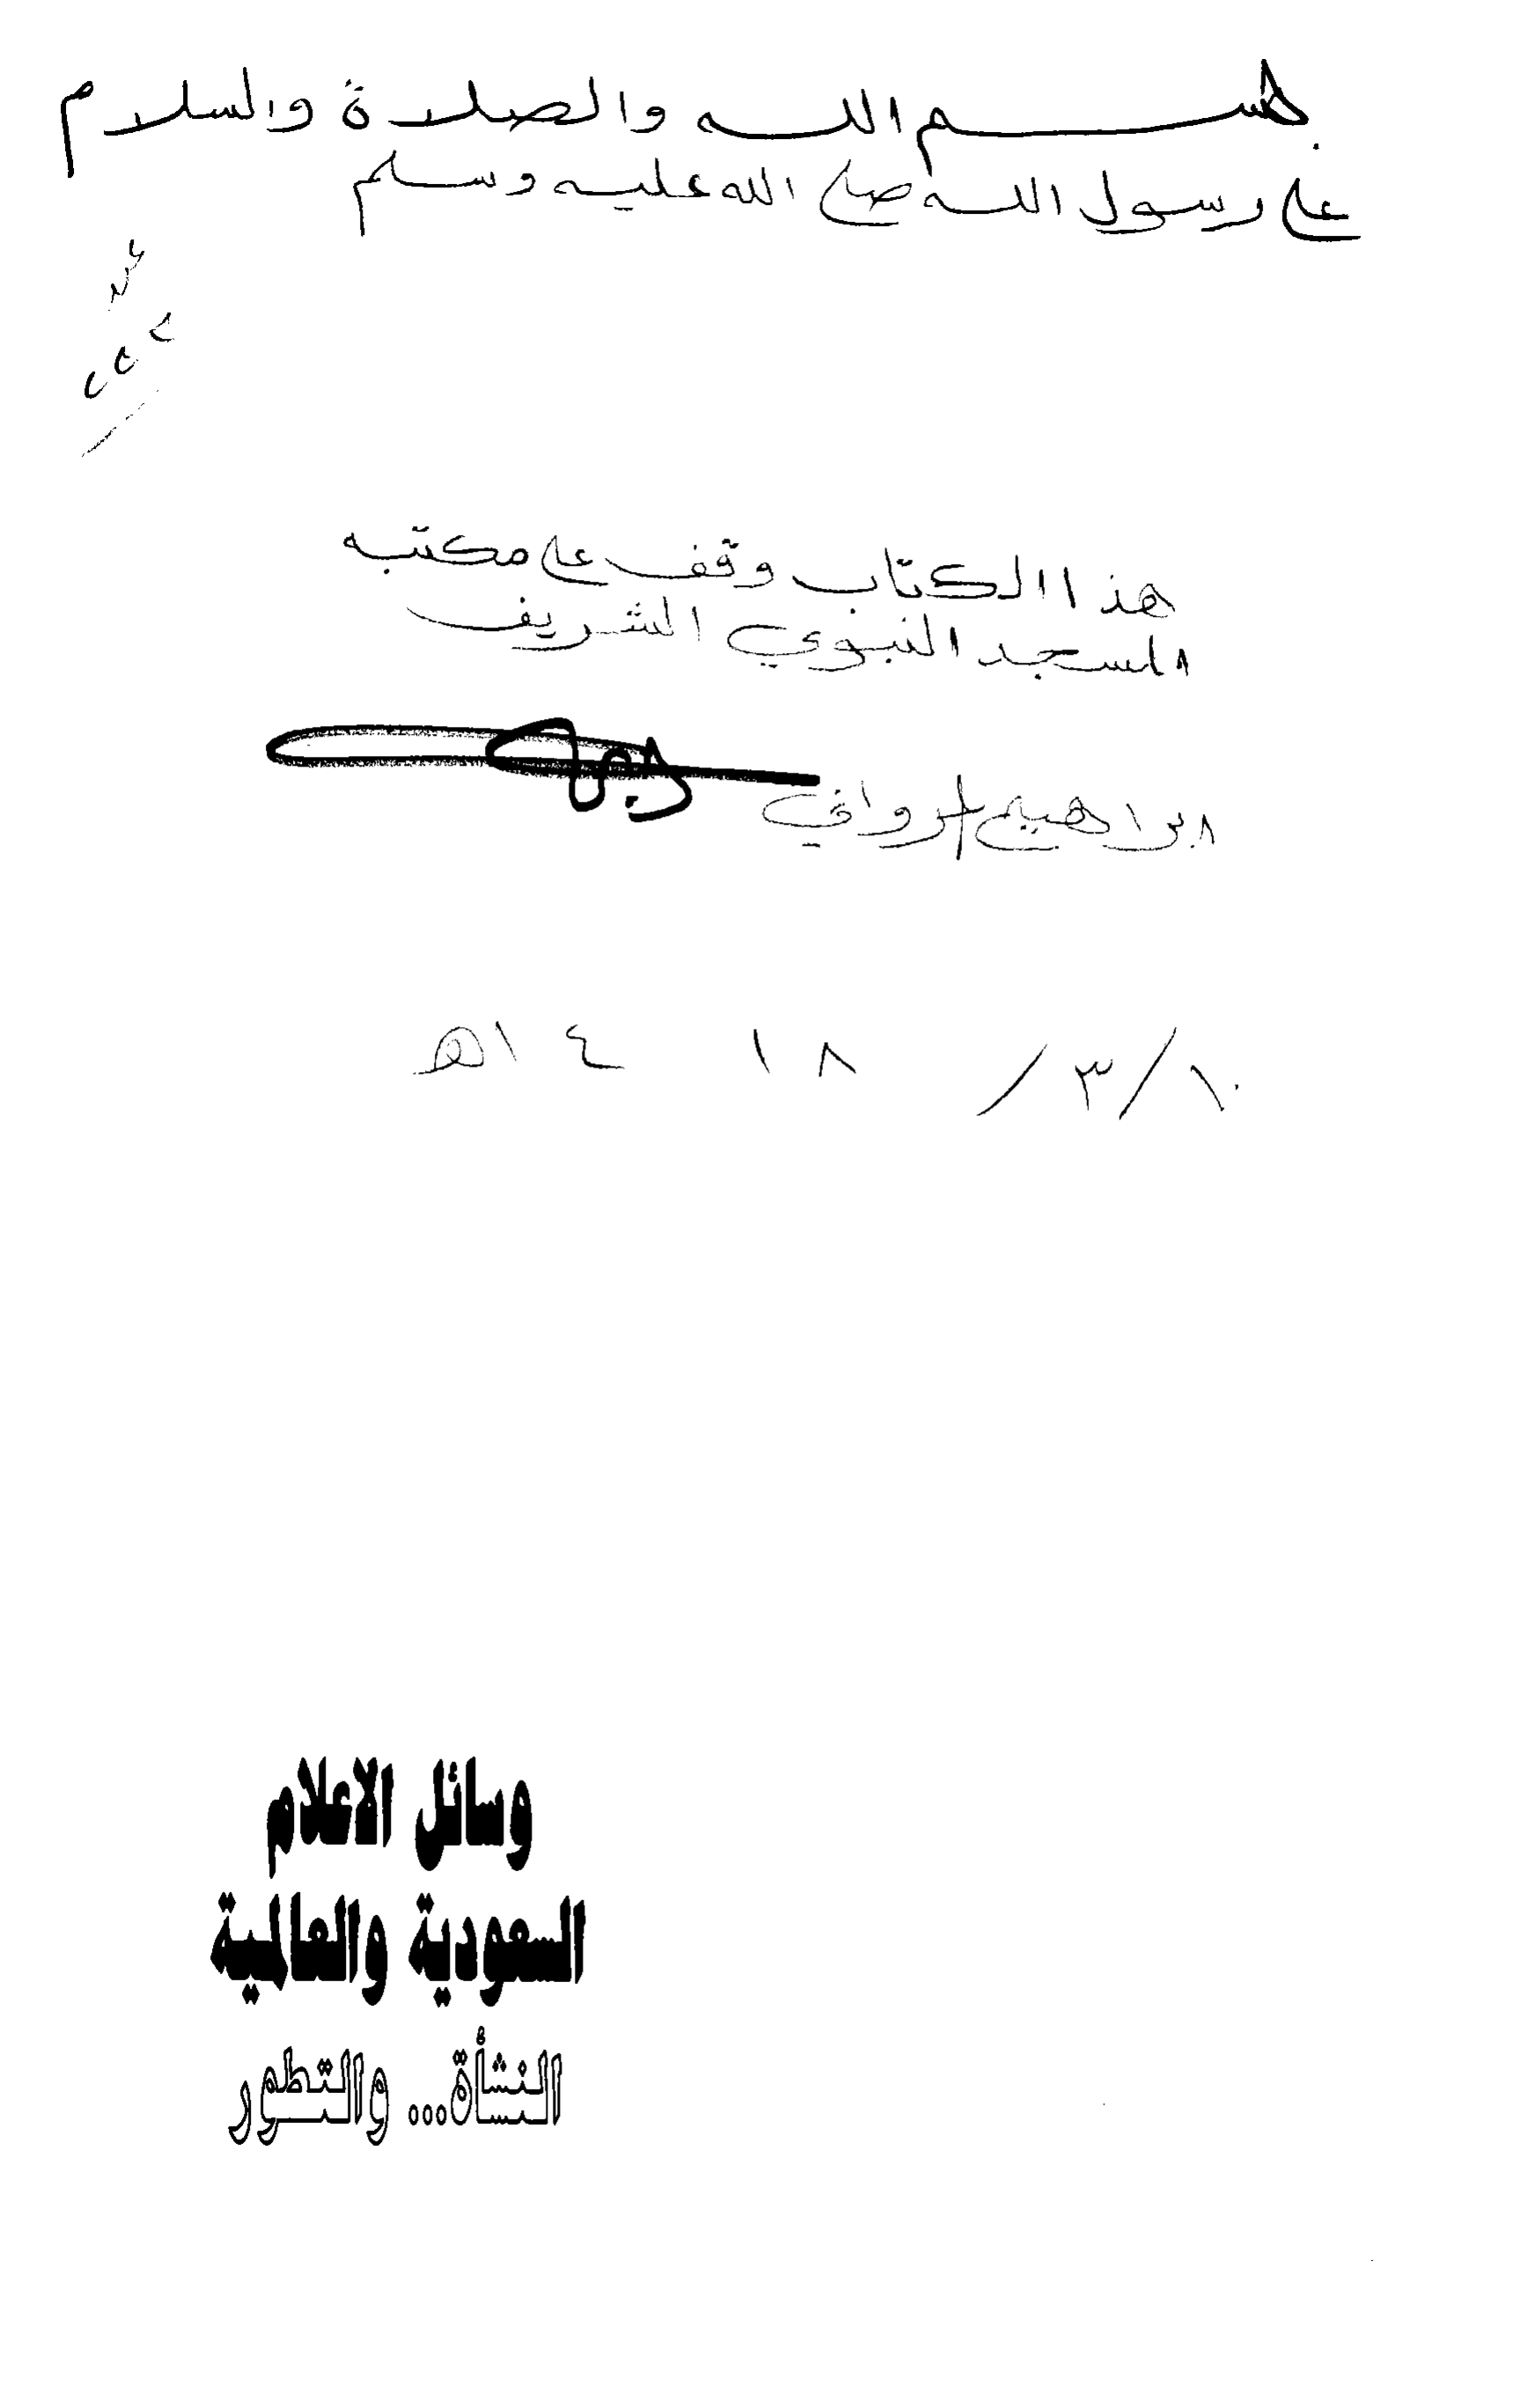 بسم الله والصلاة والسلام
على رسول الله صلى الله عليه وسلم
هذا الكتاب وقف على مكتبه
المسجد النبوي الشريف
ابراهيم
١٠/٣/ ١٨ ١٤هـ
وسائل الاعلام
السعودية والعالمية
النشأة... والتطور